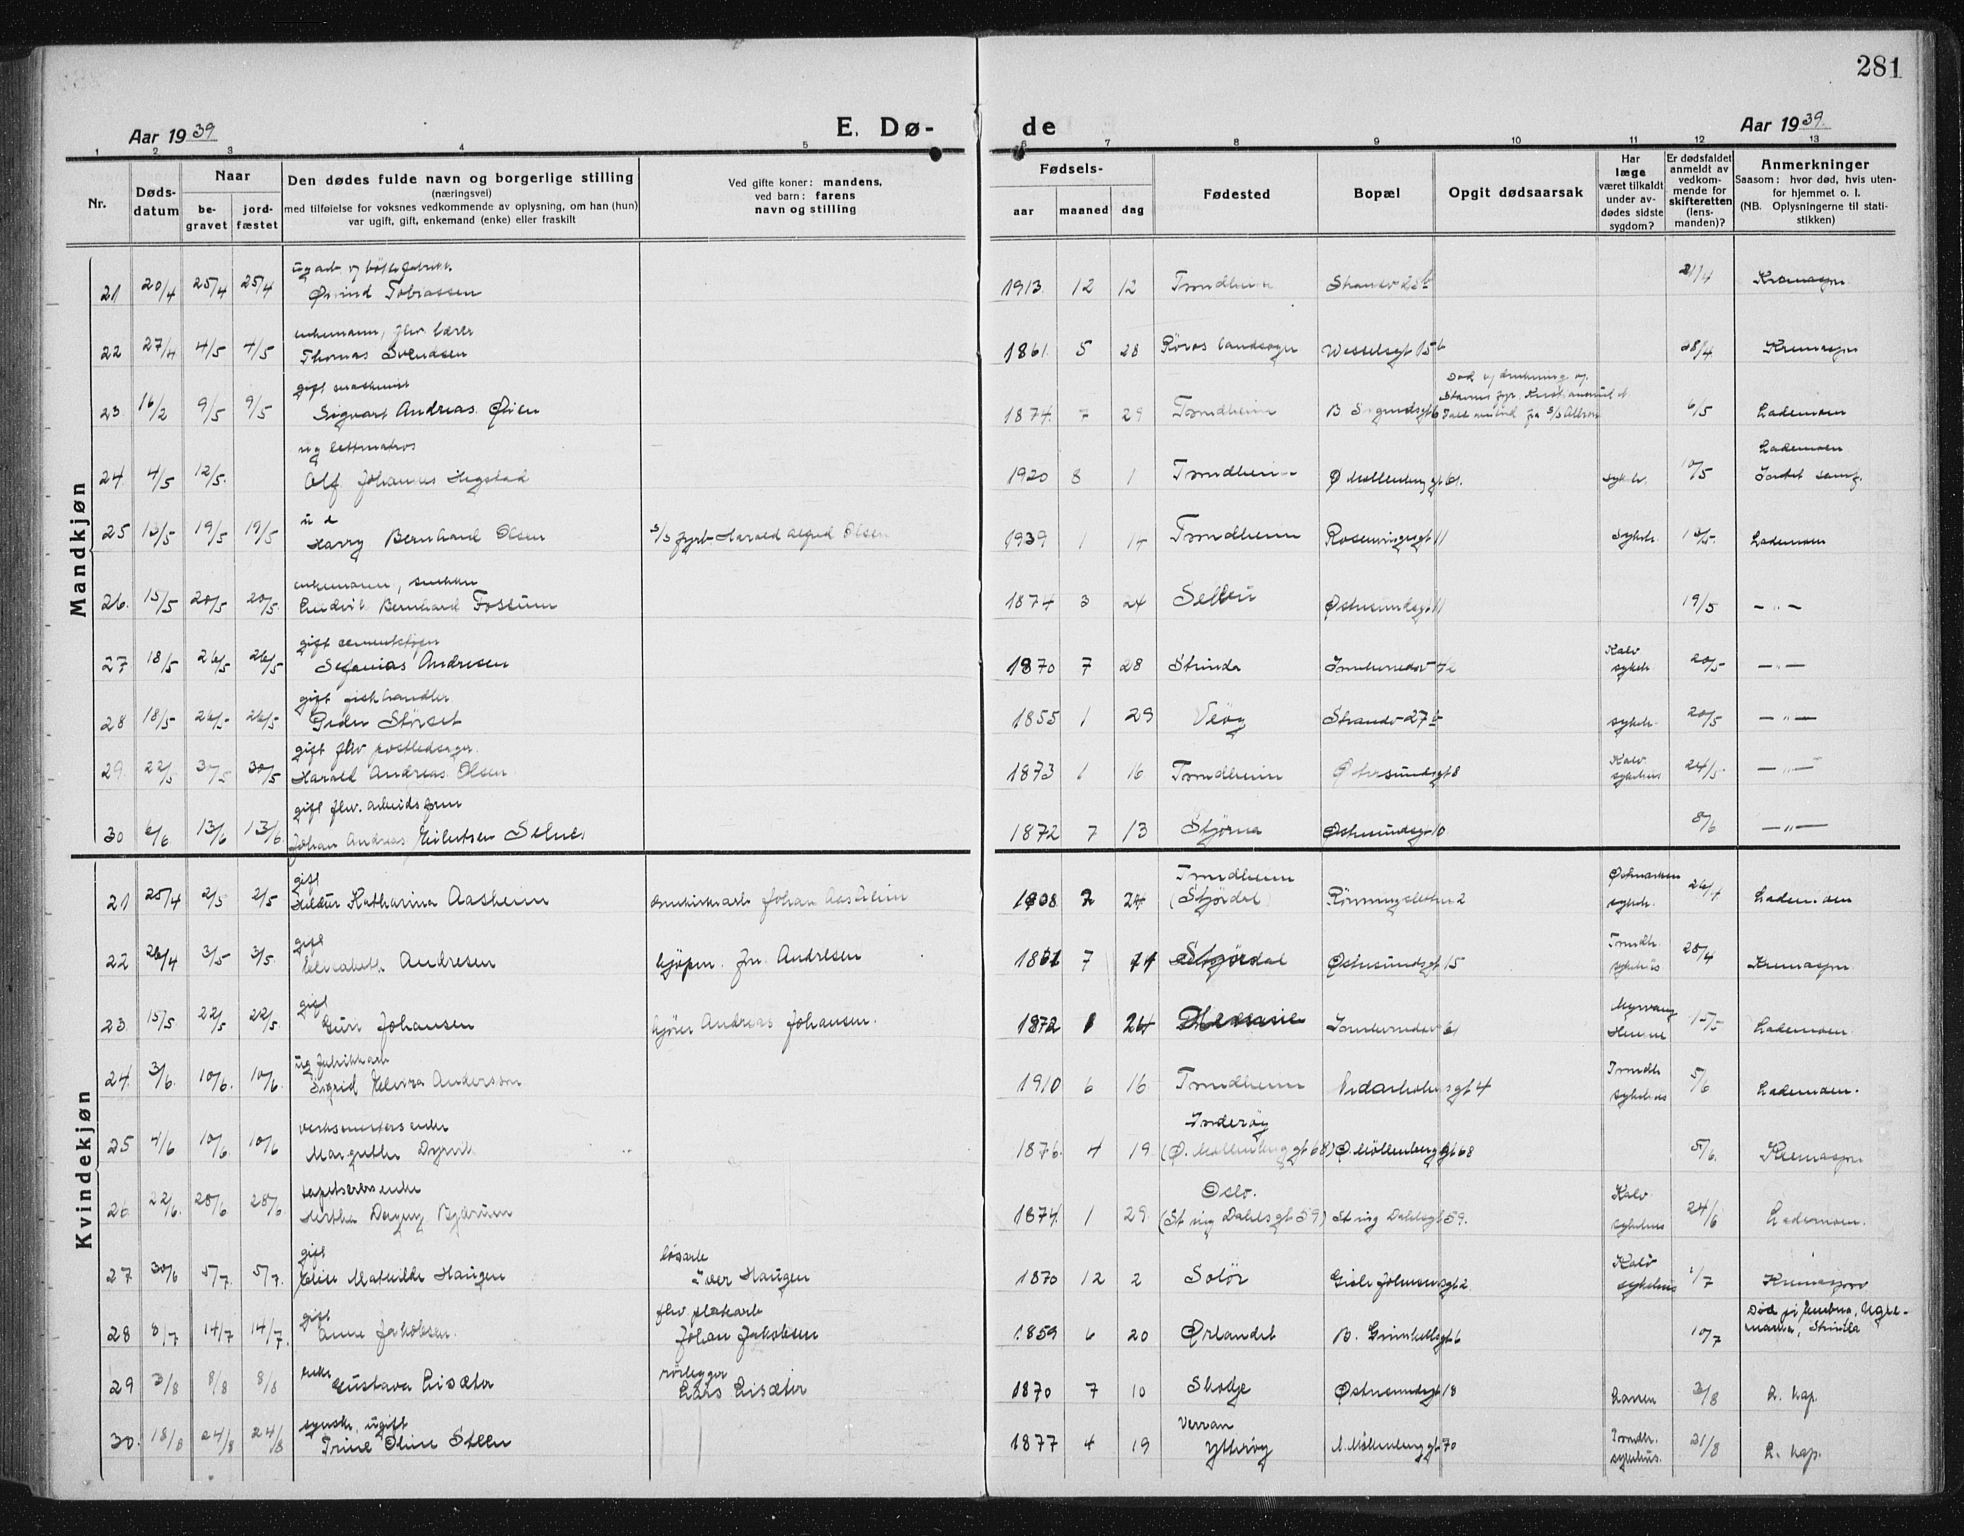 281
Aar 1939
E. Dø-
de
Aar 1939.
1 2 3 4 5 6 7 8 9 10 11 12 13
Nr.
Døds-
datum
Naar
be-
gravet
jord-
fæstet
Den dødes fulde navn og borgerlige stilling
(næringsvei)
med tilføielse for voksnes vedkommende av oplysning, om han (hun)
var ugift, gift, enkemand (enke) eller fraskilt
Ved gifte koner: mandens,
ved barn: farens
navn og stilling
Fødsels-
aar maaned dag
Fødested
Bopæl
Opgit dødsaarsak
Har
læge
været tilkaldt
under av-
dødes sidste
sygdom?
Er dødsfaldet
anmeldt av
vedkom-
mende for
skifteretten
(lens-
manden)?
Anmerkninger
Saasom: hvor død, hvis uten-
for hjemmet o. l.
(NB. Oplysningerne til stati-
stikken)
Mandkjøn
21 20/4 25/4 25/4 Øivind Tobiassen 1913 12 12 Trondheim Strandv 25b 21/4 Kremasjon
enkemann, flv. bærer
22 27/4 4/5 4/5 Thomas Svendsen 1861 5 28 Røros landsogn Wesselsgt 15b 28/4 Kremasjon
gift maskinist
23 16/2 9/5 9/5 Sigvart Andreas Øien 1874 7 29 Trondheim 6/5 Lademoen
ug lettmatros
24 4/5 12/5 Alf Johannes Hegstad 1920 8 1 Trondheim Ø Møllenberggt 61. sykeh. 10/5 Lademoen
25 13/5 19/5 19/5 Harry Bernhard Olsen Harald Alfred Olsen 1939 1 Trondheim sykeh. 13/5. Lademoen
enkemann, snekker
26. 15/5 20/5 20/5. Ludvik Bernhard Fossum 1874 3 24 Selbu Østersundsgt 11 19/5 — „ —
gift
27 18/5 26/5 26/5 Sefanias Andresen 1870 7 28 Strinda Innherredsv Kalv sykeh. 20/5 — „ —
gift fiskhandler
28 18/5 26/5 26/5 Peder Størset 1855 1 29 Veøy Strandv 27b sykeh. 20/5 — „ —
gift flv
29. 22/5 30/5 30/5 Harald Andreas Olsen 1873 1 16 Trondheim Østersundsgt 8 Kalv sykehus 24/5 — „ —
gift flv. arbeidsform
30 6/6 13/6 13/6. Johan Andreas Eilertsen Selnes 1872 7 13 Stjørna Østersundsgt 10 8/6 — „ —
Kvindekjøn
gift
21 25/4 2/5 2/5 Katharina Aasheim Johan Aasheim 1908 2 24 Trondheim (Stjørdal) Rønningsletten 2 Østmarken sykeh. 26/4 Lademoen
gift
22 26/4 3/5 3/5. Elisabeth Andresen kjøpm. Andresen 7 Stjørdal Østersundsgt 15 Trondh. sykehus 28/4 Kremasjon
gift
23. 15/5 22/5 22/5. Guri Johansen kjører Andreas Johansen. 1872 1 24 Innherredsv 61 15/5 Lademoen
ug fabrikkarb
24. 3/6. 10/6. 10/6. Sigrid Elvira Anderson 1910 6 16 Trondheim Nidarholmsgt 4 Trondh sykehus 5/6 Lademoen.
25 4/6 10/6 10/6 Margrethe Dyrvik 1876. 4 19 Inderøy (Ø. Møllenberggt 68) Ø Møllenberggt 68 5/6. Kremasjon
tapetserers enke
26. 22/6. 28/6 28/6 Dagny Bjærum 1874. 1 29 Oslo. (St ing Dahlsgt 59) St ing Dahlsgt 59. Kalv sykehus 24/6 Lademoen.
gift
27 30/6 5/7. 5/7. Mathilde Haugen løsarb Haugen 1870 12 2 Solør Gisle Johnsensgt 2 Kalv sykehus 1/7 Kremasjon
gift
28 8/7 14/7 14/7. Anne Jakobsen. flv Johan Jakobsen 1859 6 20 Ørlandet B. Grimkellsgt 6 10/7 Strinda
enke
29 3/8 8/8 8/8 Gustava Lisæter rørlegger Lars Lisæter 1870 7 10 Skodje Østersundsgt 18 3/8 L. kap.
ugift
30. 18/8 24/8 24/8 Trine Oline Steen 1877 4 19 Verran Ytterøy N. Møllenberggt 70 Trondh. sykehus. 21/8 L. kap.